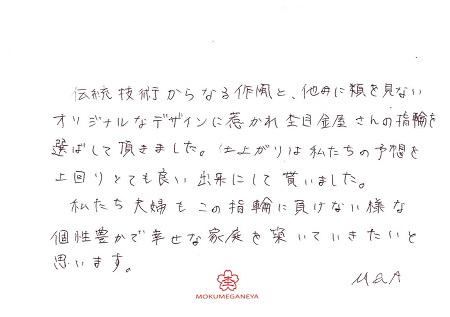 伝統技術からなる作風と、他に類を見ない
オリジナルなデザインに惹かれ杢目金屋さんの指輪を
選ばして頂きました。仕上がりは私たちの予想を
上回りとても良い出来にして貰いました。
私たち夫婦もこの指輪に負けない様な
個性豊かで幸せな家庭を築いていきたいと
思います。
M&A
MOKUMEGANEYA